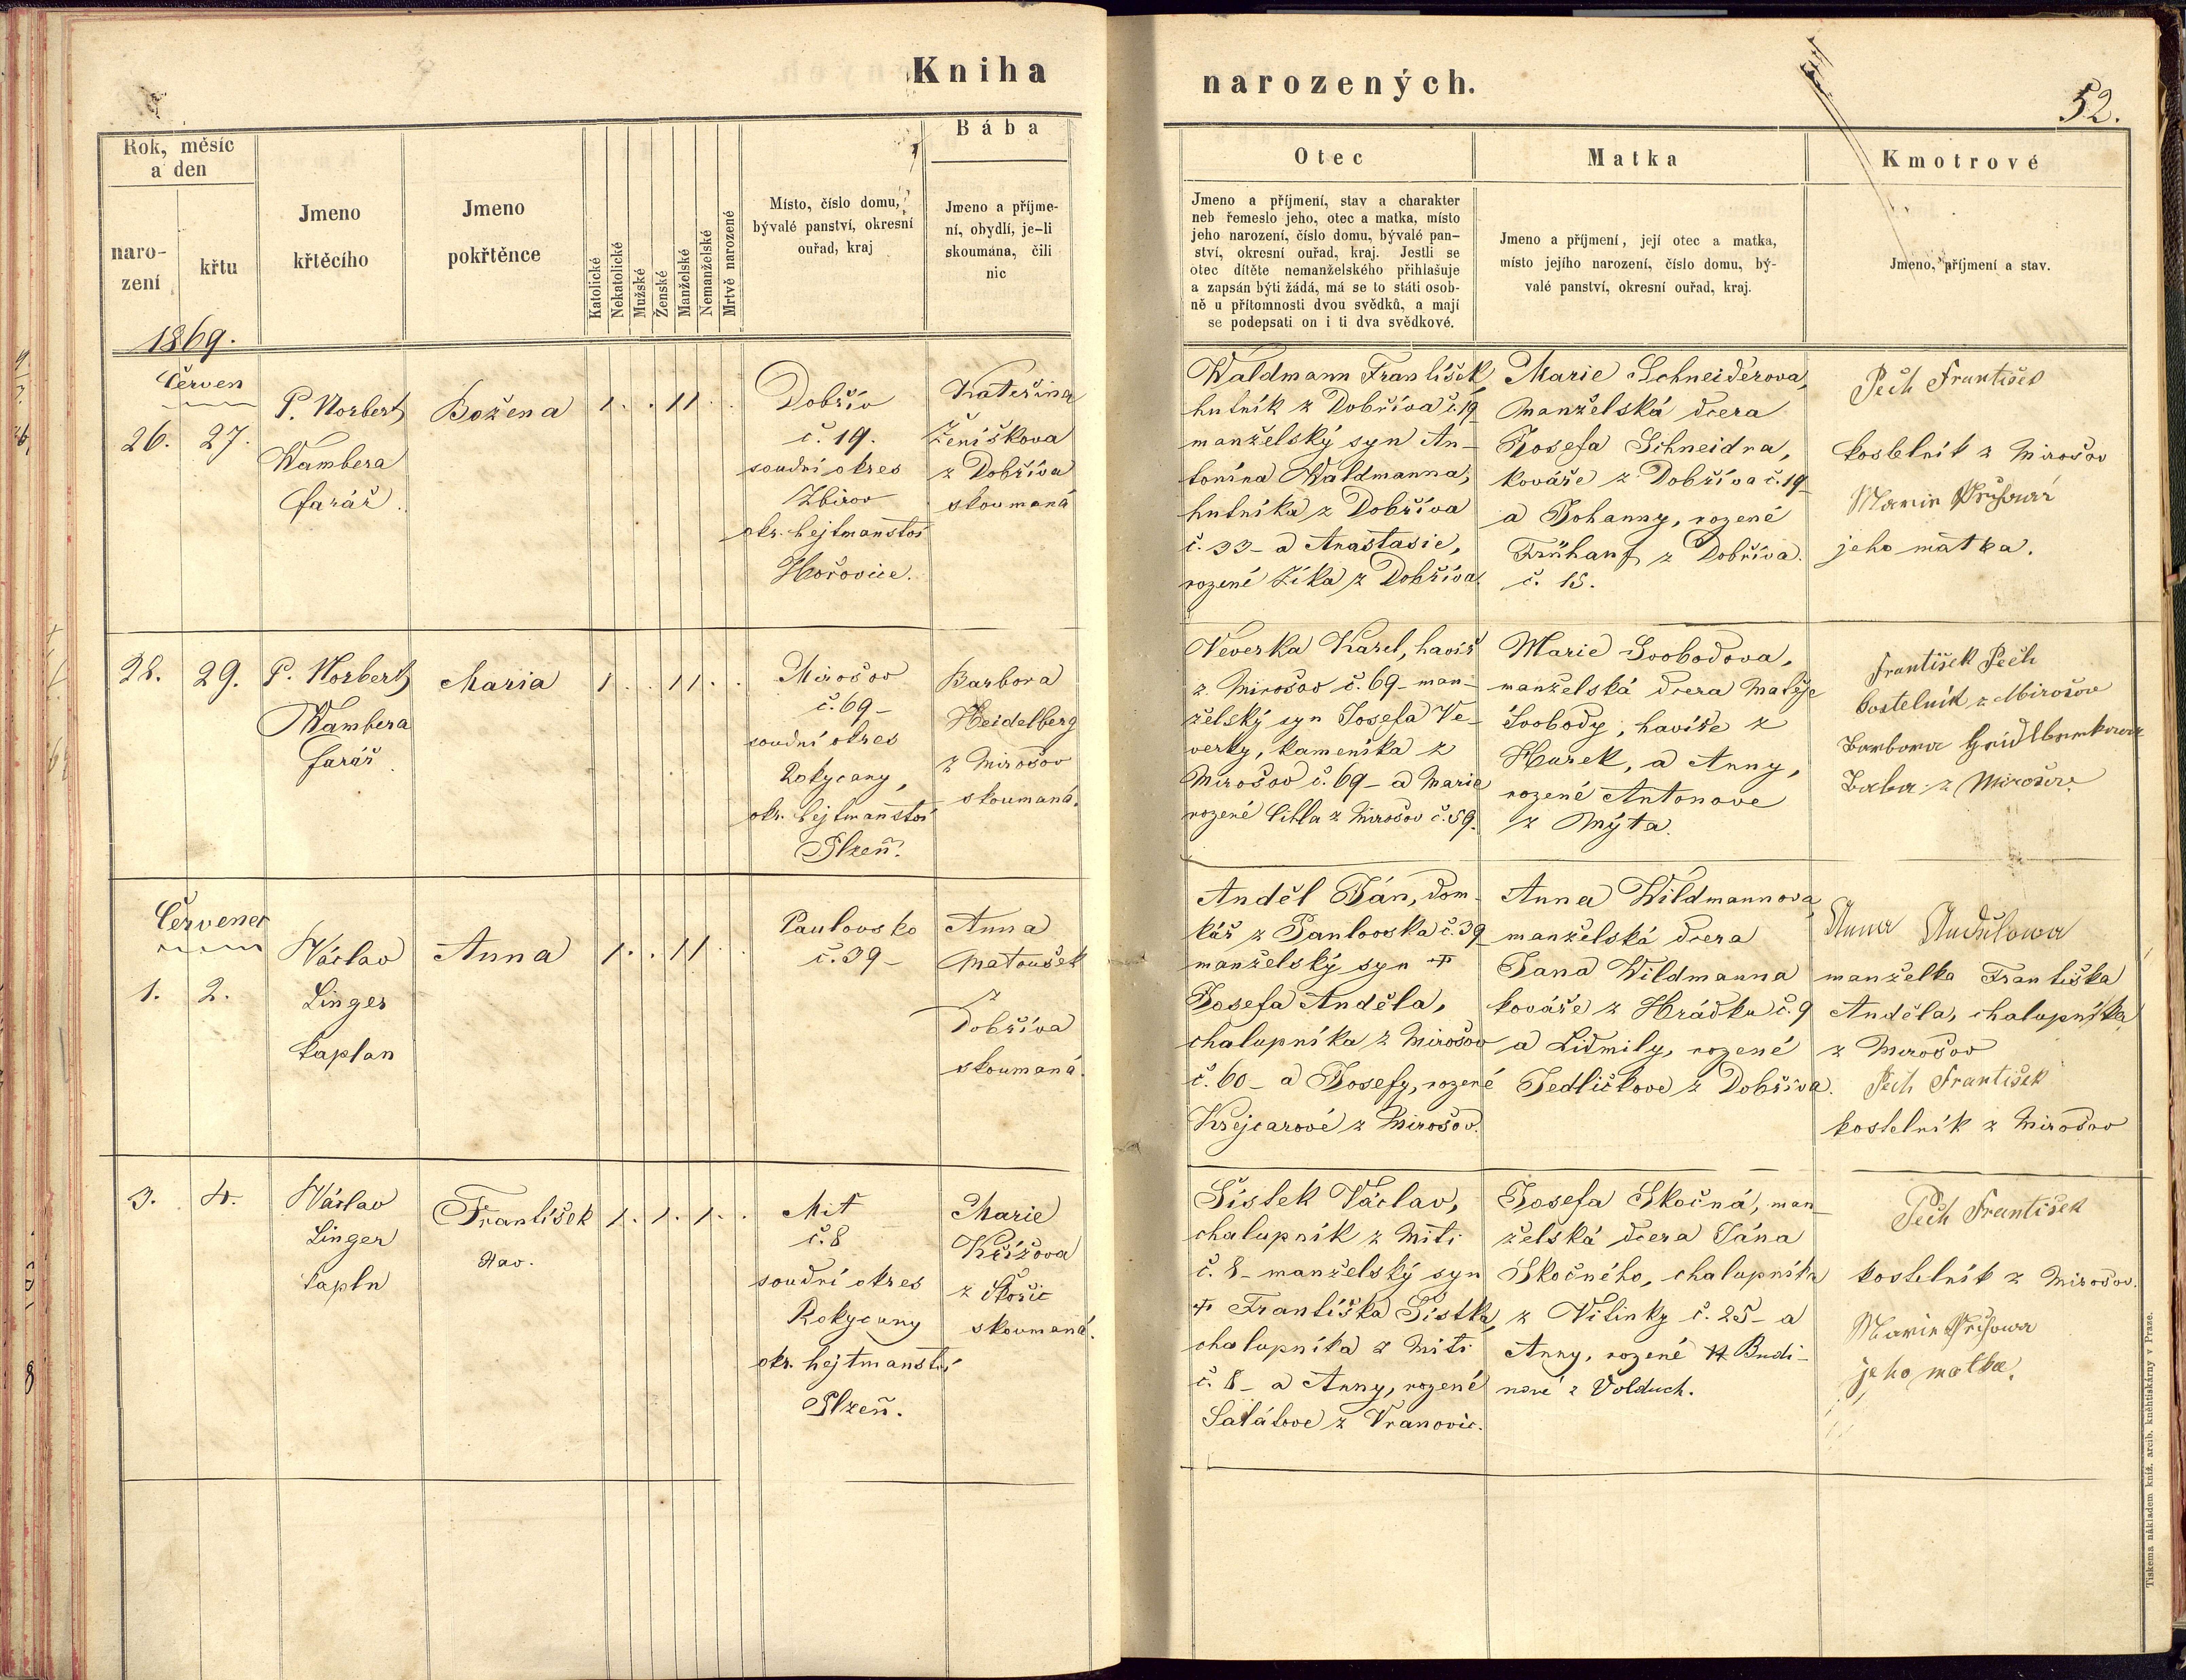 Kniha
Rok, měsíc
a den
naro-
zení
křtu
Jmeno
křtěcího
Jmeno
pokřtěnce
Katolické
Nekatolické
Mužské
Ženské
Manželské
Nemanželské
Mrtvě narozené
Místo, číslo domu,
bývalé panství, okresní
ouřad, kraj
Bába
Jmeno a příjme-
ní, obydlí, je-li
skoumána, čili
nic
1869.
Červen
26. 27.
P. Norbert
Wambera
farář.
Božena
1 . . 1 1 . .
Dobřív
č. 19.
soudní okres
Zbirov
okr. hejtmanství
Hořovice.
Kateřina
Ženíškova
z Dobříva
skoumaná
28. 29.
P. Norbert
Wambera
farář.
Maria
1 . . 1 1 . .
Mirošov
č. 69 –
soudní okres
Rokycany,
okr. hejtmanství
Plzeň.
Barbora
Heidelberg
z Mirošov
skoumaná.
Červenec
1. 2.
Václav
Linger
kaplan
Anna
1 . . 1 1 . .
Pavlovsko
č. 39 –
Anna
Matoušek
z
Dobříva
skoumaná.
3. 4.
Václav
Linger
kapln
František
1 . 1 . 1 . .
Mit
č. 8
soudní okres
Rokycany
okr. hejtmanství
Plzeň.
Marie
Křížova
z Skořic
skoumaná.
narozených.
52.
Otec
Jmeno a příjmení, stav a charakter
neb řemeslo jeho, otec a matka, místo
jeho narození, číslo domu, bývalé pan-
ství, okresní ouřad, kraj. Jestli se
otec dítěte nemanželského přihlašuje
a zapsán býti žádá, má se to státi osob-
ně u přítomnosti dvou svědků, a mají
se podepsati on i ti dva svědkové.
Matka
Jmeno a příjmení, její otec a matka,
místo jejího narození, číslo domu, bý-
valé panství, okresní ouřad, kraj.
Kmotrové
Jmeno, příjmení a stav.
Waldmann František,
hutník z Dobříva č. 19
manželský syn An-
tonína Waldmanna,
hutníka z Dobříva
č. 33 – a Anastasie,
rozené Zíka z Dobříva.
Marie Schneiderova,
manželská dcera
Josefa Schneidra,
kováře z Dobříva č. 19
a Johanny, rozené
Frühauf z Dobříva.
č. 15.
Pech František
kostelník z Mirošov
jeho matka.
Veverka Karel, havíř
z Mirošov č. 69 – man-
želský syn Josefa Ve-
verky, kameníka z
Mirošov č. 69 – a Marie
rozené Cihla z Mirošov č. 59.
Marie Svobodova,
manželská dcera Matěje
Svobody, havíře z
Hurek, a Anny,
rozené Antonove
z Mýta.
František Pech
kostelník z Mirošova
Barbora
Baba z Mirošova
Anděl Ján, dom-
kář z Pavlovska č. 39
manželský syn †
Josefa Anděla,
chalupníka z Mirošov
č. 60 – a Josefy, rozené
Krejcarové z Mirošov.
Anna Wildmannova
manželská dcera
Jana Wildmanna
kováře z Hrádku č. 9
a Lidmily, rozené
Jedličkove z Dobříva.
Anna Andělowa
manželka Františka
Anděla, chalupníka
z Mirošov
Pech František
kostelník z Mirošov
Šístek Václav,
chalupník z Mití
č. 8 – manželský syn
† Františka Šístka,
chalupníka z Mití
č. 8 – a Anny, rozené
Salátove z Vranovic.
Josefa Skočná, man-
želská dcera Jána
Skočného, chalupníka
z Vitinky č. 25 – a
Anny, rozené Budi-
nové z Volduch.
Pech František
kostelník z Mirošov.
jeho matka.
Tiskema nákladem kníž. arcib. kněhtiskárny v Praze.